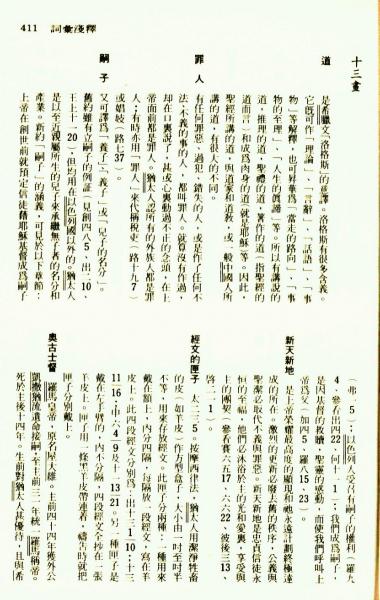 411 詞彙淺釋
十三畫
道 是希臘文「洛格斯」的意譯。洛格斯有很多含義。
它既可作「理論」、「言辭」、「話語」、「事
物」等解釋，也可昇華為「當走的路向」、「事
物的至理」、「人生的真諦」等。所以有講說的
道，推理的道，聖禮的道，著作的道（指聖經的
道而言）和成為肉身的道（就是耶穌）等。因此，
聖經所講的道，與道家和道教，或一般中國人所
講的道，有很大的不同。
罪人 有任何罪惡、過犯、錯失的人，或是作了任何不
法、不義的事的人，都叫罪人。就算沒有作過，
却在口裏說了，甚或心裏動過不正的念頭，在上
帝面前都是罪人。猶太人認所有的外族人都是罪
人；有時亦用「罪人」來代稱稅吏（路十九7）
或娼妓（路七37）。
嗣子 又可譯為「養子」、「義子」或「兒子的名分」。
舊約雖有立嗣子的例證（見創四八5、出二10、
王上十一20），但均用在以色列國以外的。猶太人
是以至近親屬所生的兒子來承繼無子者的名分和
產業。新約「嗣子」的涵義，可見於以下章節：
上帝在創世前就預定信徒藉耶穌基督成為嗣子
（弗一5）；以色列人受召有嗣子的權利（羅九
4，參看出四22，何十一1）；我們成為嗣子，
是因基督的救贖，聖靈的感動，而使我們呼叫上
帝為父（加四5，羅八15，23）。
新天新地 是上帝榮耀最高度的顯現和祂永遠計劃終極達
成的所在。激烈的更新必廢去舊的秩序，公義與
聖潔必取代不義與罪惡。新天新地是忠貞信徒永
恒的至福，他們必沐浴於主的光和愛裏，享受與
主的團契（參看賽六五17，六六22，彼後三13，
啓二一1）。
經文的匣子 太二三5。按摩西律法，猶太人用潔淨牲畜
的皮（如羊皮）作方型盒子，大小由一吋至吋半
不等，用來存放經文。此匣子分兩種：一種用來
戴在額上，內分四隔，每隔放一段經文，寫在羊
皮上。此四段經文分別為：出十三1-10；十三
11-16；申六4-9及十一13-21。另一種匣子是
戴在左手臂的，內不分隔，四段經文全抄在一張
羊皮上。匣子用一條黑羊皮帶連着，禱告時就把
匣子分別戴上。
奧古士督 羅馬皇帝，原名屋大維。主前四十四年獲外公
凱撒猶流遺命接嗣，至主前三一年統一羅馬稱帝。
死於主後十四年。生前對猶太人甚優待，且與希